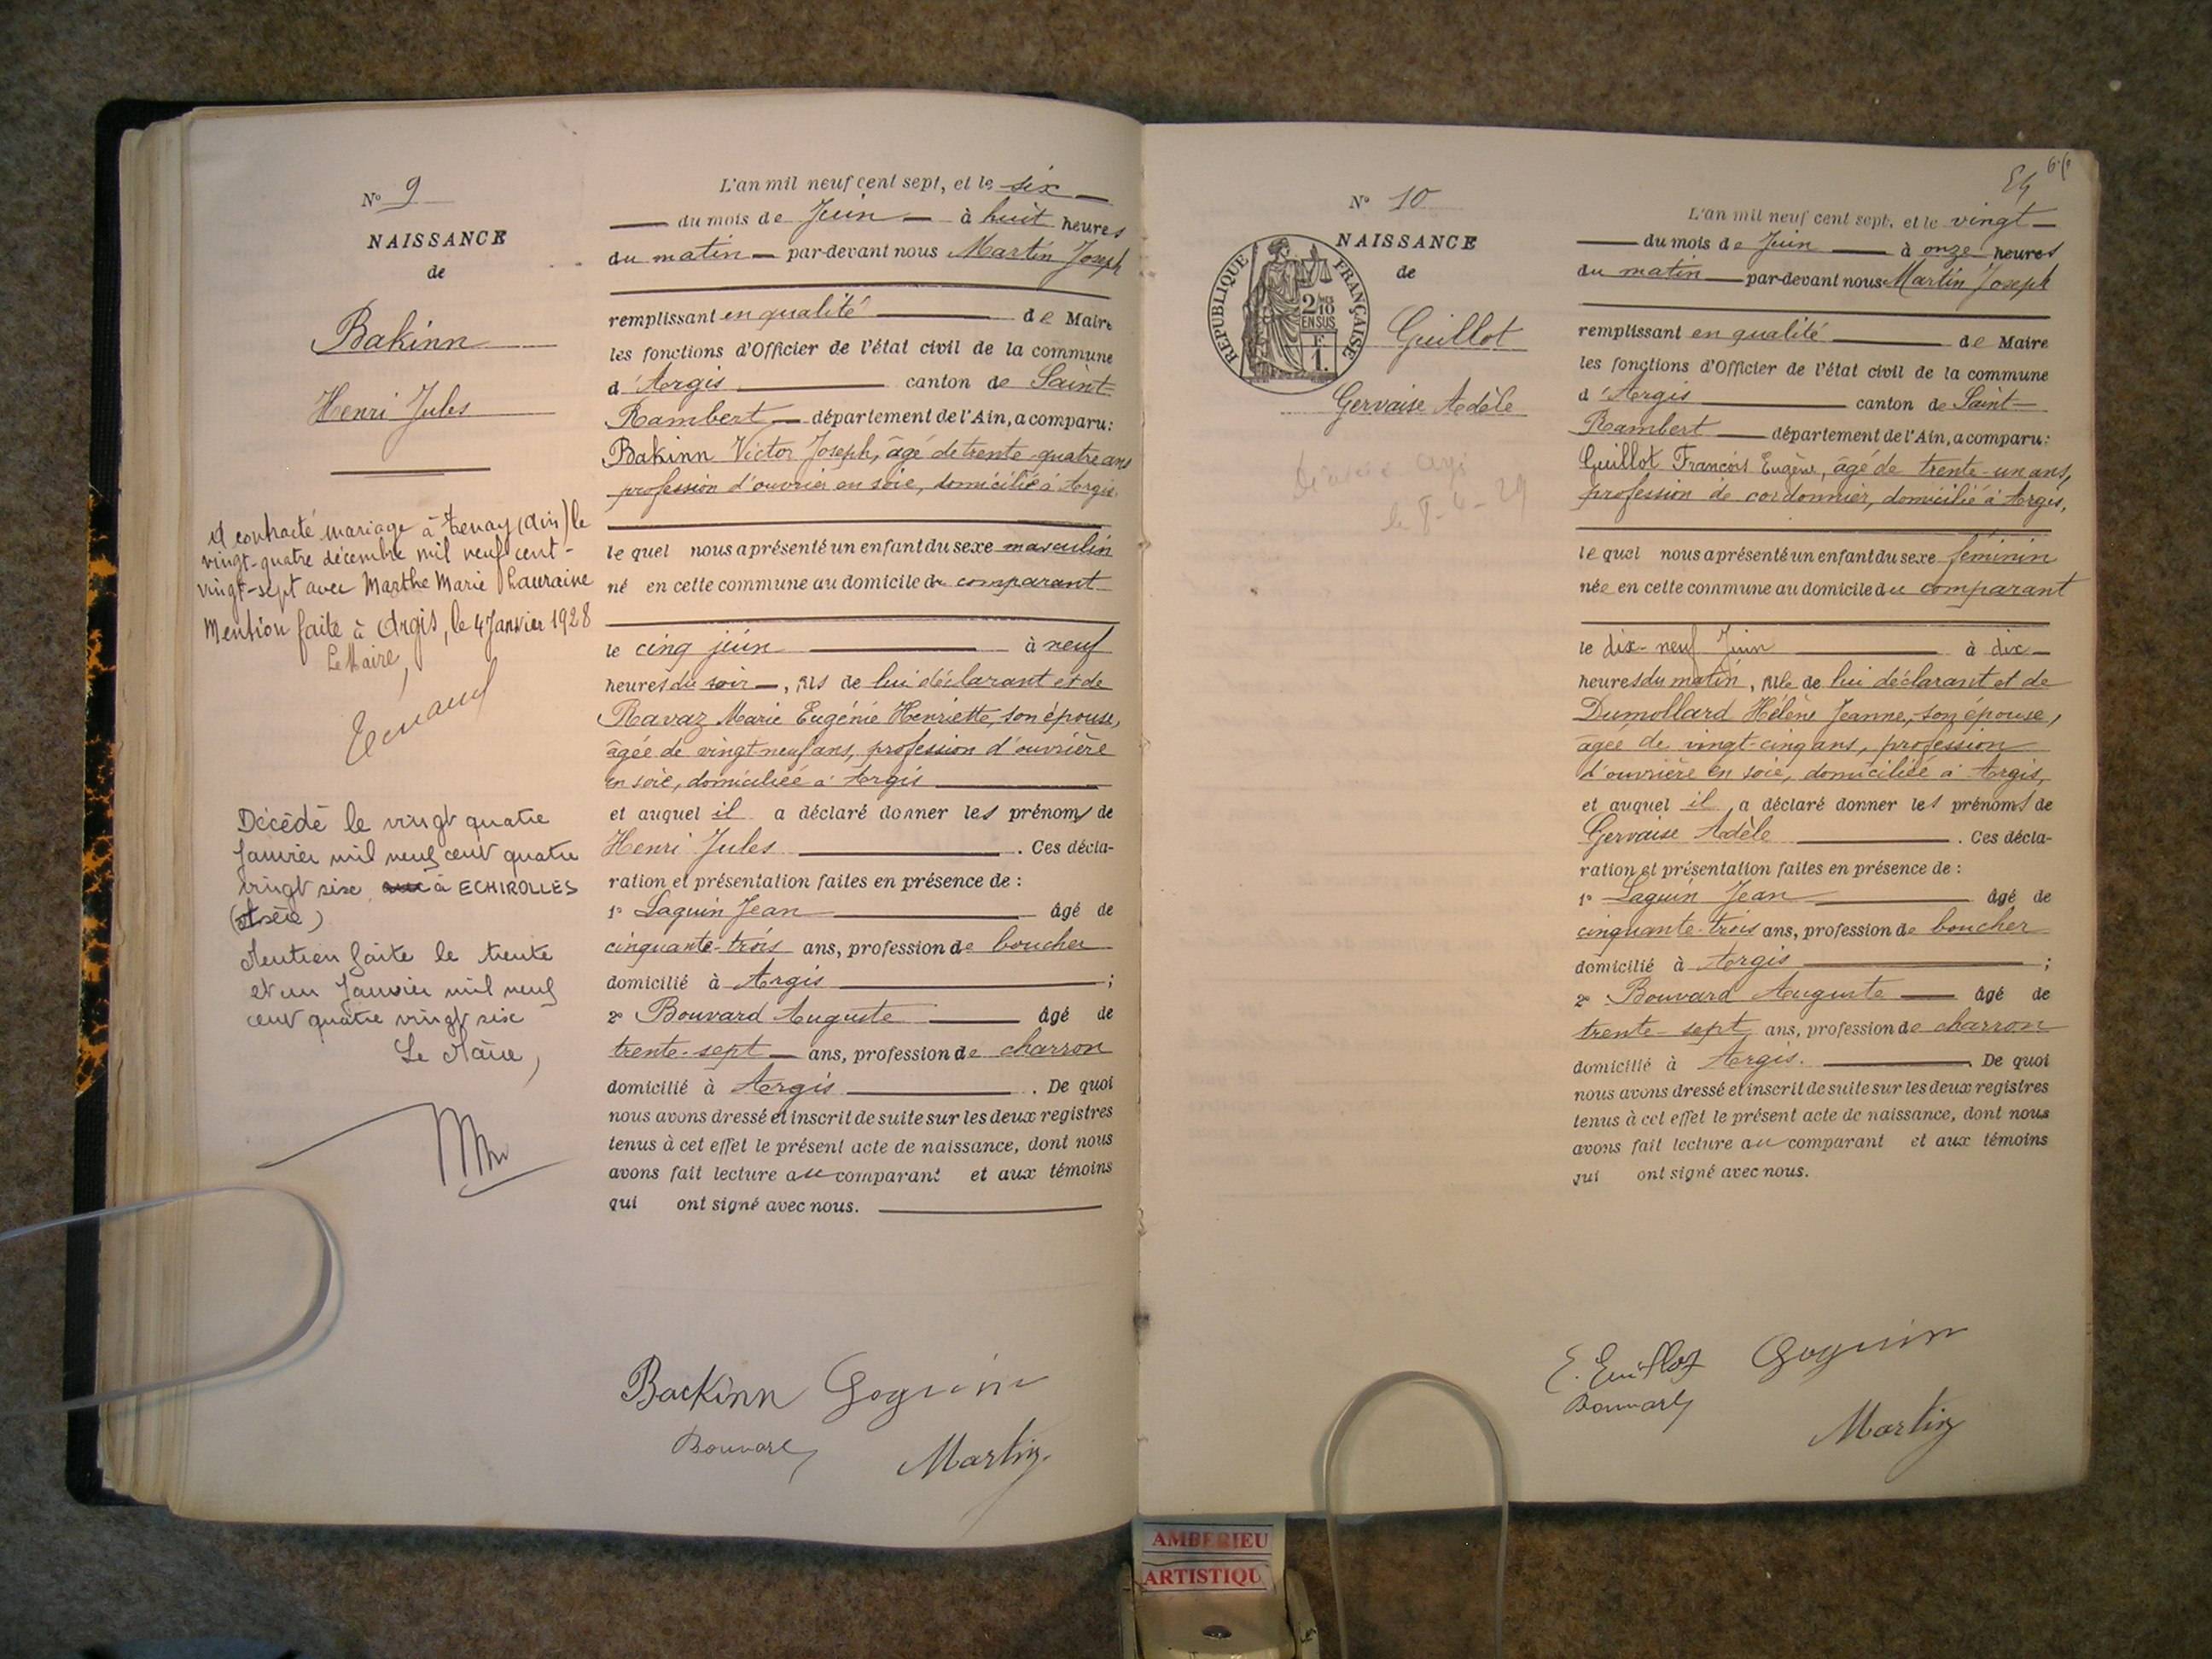 No 9
NAISSANCE
de
Bakinn
Henri Jules
A contracté mariage à Tenay (Ain) le
vingt-quatre décembre mil neuf cent-
vingt-sept avec Marthe Marie Lauraine
Mention faite à Argis, le 4 Janvier 1928
Le Maire,
Décédé le vingt quatre
Janvier mil neuf cent quatre
vingt six à ECHIROLLES
(Isère)
Mention faite le trente
et un Janvier mil neuf
cent quatre vingt six
Le Maire,
L'an mil neuf cent sept, et le six
du mois de Juin à huit heures
du matin par-devant nous Martin Joseph
remplissant en qualité de Maire
les fonctions d'Officier de l'état civil de la commune
d'Argis canton de Saint-
Rambert département de l'Ain, a comparu:
Bakinn Victor Joseph, âgé de trente-quatre ans
profession d'ouvrier en soie, domicilié à Argis.
le quel nous a présenté un enfant du sexe masculin
né en cette commune au domicile du comparant
le cinq juin à neuf
heures du soir, fils de lui déclarant et de
Ravaz Marie Eugénie Henriette, son épouse,
âgée de vingt neuf ans, profession d'ouvrière
en soie, domiciliée à Argis
et auquel il a déclaré donner les prénoms de
Henri Jules. Ces décla-
ration et présentation faites en présence de :
1º Laguin Jean âgé de
cinquante-trois ans, profession de boucher
domicilié à Argis ;
2º Bouvard Auguste âgé de
trente-sept ans, profession de charron
domicilié à Argis. De quoi
nous avons dressé et inscrit de suite sur les deux registres
tenus à cet effet le présent acte de naissance, dont nous
avons fait lecture au comparant et aux témoins
qui ont signé avec nous.
Backinn Goguin
Bouvard
Martin
54
No 10
NAISSANCE
de
REPUBLIQUE FRANÇAISE
2/10
EN SUS
F
1.
Guillot
Gervaise Adèle
le 8-4-29
L'an mil neuf cent sept, et le vingt
du mois de Juin à onze heures
du matin par-devant nous Martin Joseph
remplissant en qualité de Maire
les fonctions d'Officier de l'état civil de la commune
d'Argis canton de Saint-
Rambert département de l'Ain, a comparu:
Guillot François Eugène, âgé de trente-un ans,
profession de cordonnier, domicilié à Argis,
le quel nous a présenté un enfant du sexe féminin
née en cette commune au domicile du comparant
le dix-neuf Juin à dix
heures du matin, fille de lui déclarant et de
Dumollard Hélène Jeanne, son épouse,
âgée de vingt-cinq ans, profession
d'ouvrière en soie, domiciliée à Argis,
et auquel il a déclaré donner les prénoms de
Gervaise Adèle. Ces décla-
ration et présentation faites en présence de :
1º Laguin Jean âgé de
cinquante-trois ans, profession de boucher
domicilié à Argis ;
2º Bouvard Auguste âgé de
trente-sept ans, profession de charron
domicilié à Argis. De quoi
nous avons dressé et inscrit de suite sur les deux registres
tenus à cet effet le présent acte de naissance, dont nous
avons fait lecture au comparant et aux témoins
qui ont signé avec nous.
E. Guillot Goguin
Bouvard
Martin
AMBERIEU
ARTISTIQU